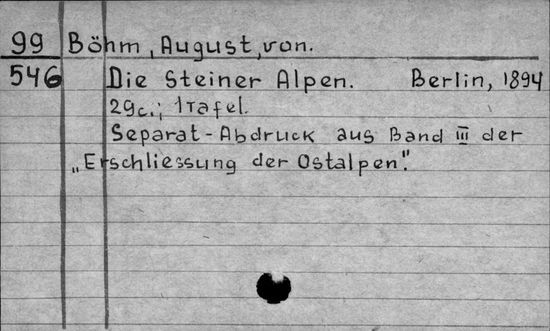 99 Böhm, August, von.
546 Die Steiner Alpen. Berlin, 1894
29c.; 1 Tafel.
Separat-Abdruck aus Band III der
„Erschliessung der Ostalpen".